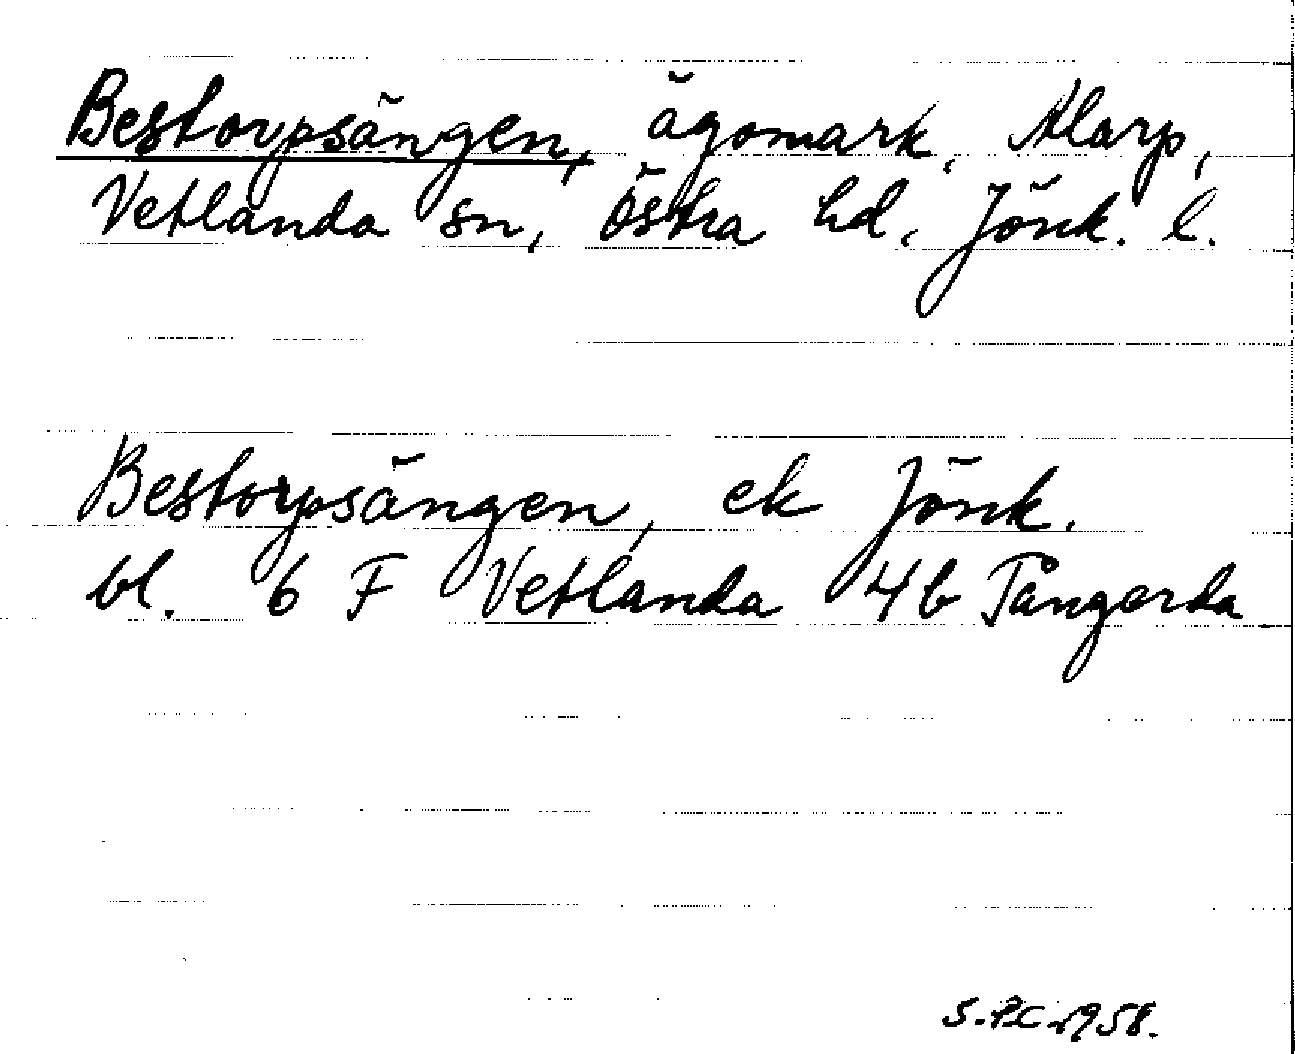 Bestorpsängen, ägomark, Alarp,
Vetlanda sn, Östra hd, Jönk. l.
Bestorpsängen, ek Jönk.
bl. 6 F Vetlanda 4b Tångerda
1958.